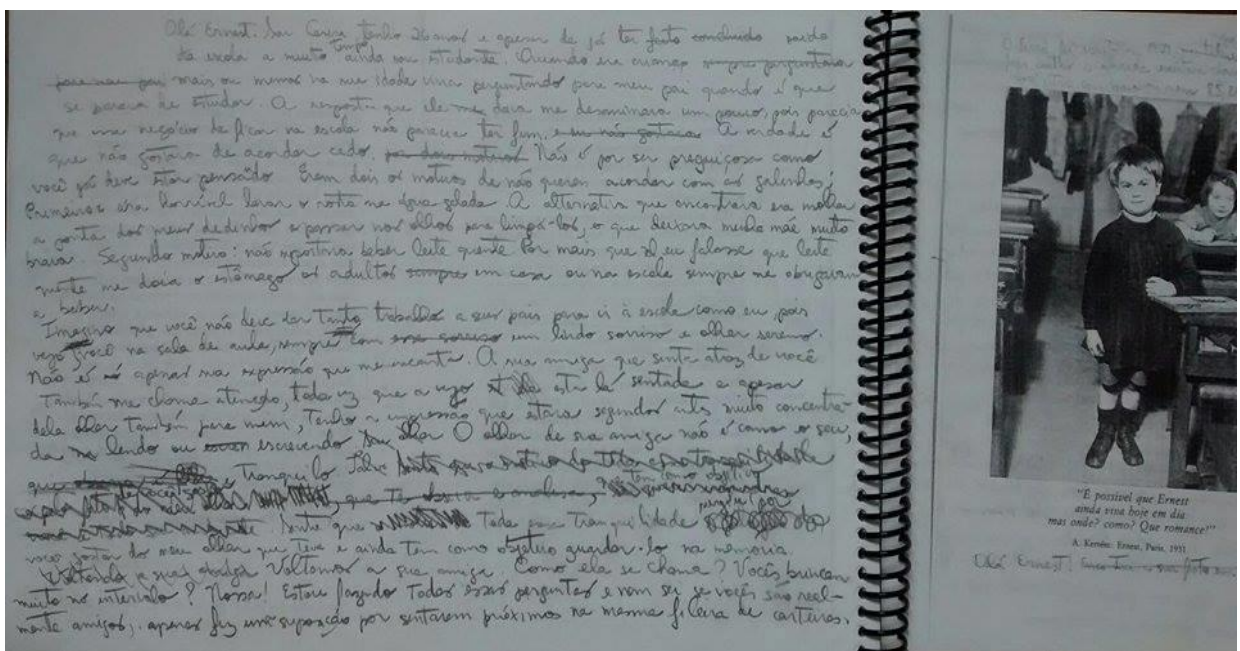 Olá Ernest! Sou Carine, tenho 26 anos e apesar de já ter feito concluído saído
da escola a muito tempo ainda sou estudante. Quando era criança sempre perguntava
para meu pai mais ou menos na sua idade vivia perguntando para meu pai quando é que
se parava de estudar. A resposta que ele me dava me desanimava um pouco, pois parecia
que esse negócio de ficar na escola não parecia ter fim, e eu não gostava A verdade é
que não gostava de acordar cedo, por dois motivos Não é por ser preguiçosa como
você já deve estar pensado Eram dois os motivos de não querer acordar com as galinhas;
Primeiro: era horrível lavar o rosto na água gelada. A alternativa que encontrava era molhar
a ponta dos meus dedinhos e passar nos olhos para limpá-los, o que deixava minha mãe muito
brava. Segundo motivo: não suportava beber leite quente Por mais que eu falasse que leite
quente me doía o estômago os adultos sempre em casa ou na escola sempre me obrigavam
a beber.
Imagino que você não deve dar tanto trabalho a seus pais para ir à escola como eu, pois
vejo você na sala de aula, sempre com um lindo sorriso e olhar sereno.
Não é só apenas sua expressão que me encanta. A sua amiga que senta atraz de você
também me chama atenção, toda vez que a vejo está lá sentada e apesar
dela olhar também para mim, tenho a impressão que estava segundos antes muito concentra-
da lendo ou escrevendo O olhar de sua amiga não é como o seu,
tranquilo Talvez
que te
Sinto que toda essa tranquilidade
vocês gostam do meu olhar que teve e ainda tem como objetivo guardá-los na memória.
Voltando a sua amiga Voltamos a sua amiga. Como ela se chama? Vocês brincam
muito no intervalo? Nossa! Estou fazendo todas essas perguntas e nem sei se vocês são real-
mente amigos, apenas fiz uma suposição por sentarem próximos na mesma fileira de carteiras.
"É possível que Ernest
ainda viva hoje em dia
mas onde? como? Que romance!"
A. Kertész: Ernest, Paris, 1931
Olá Ernest!